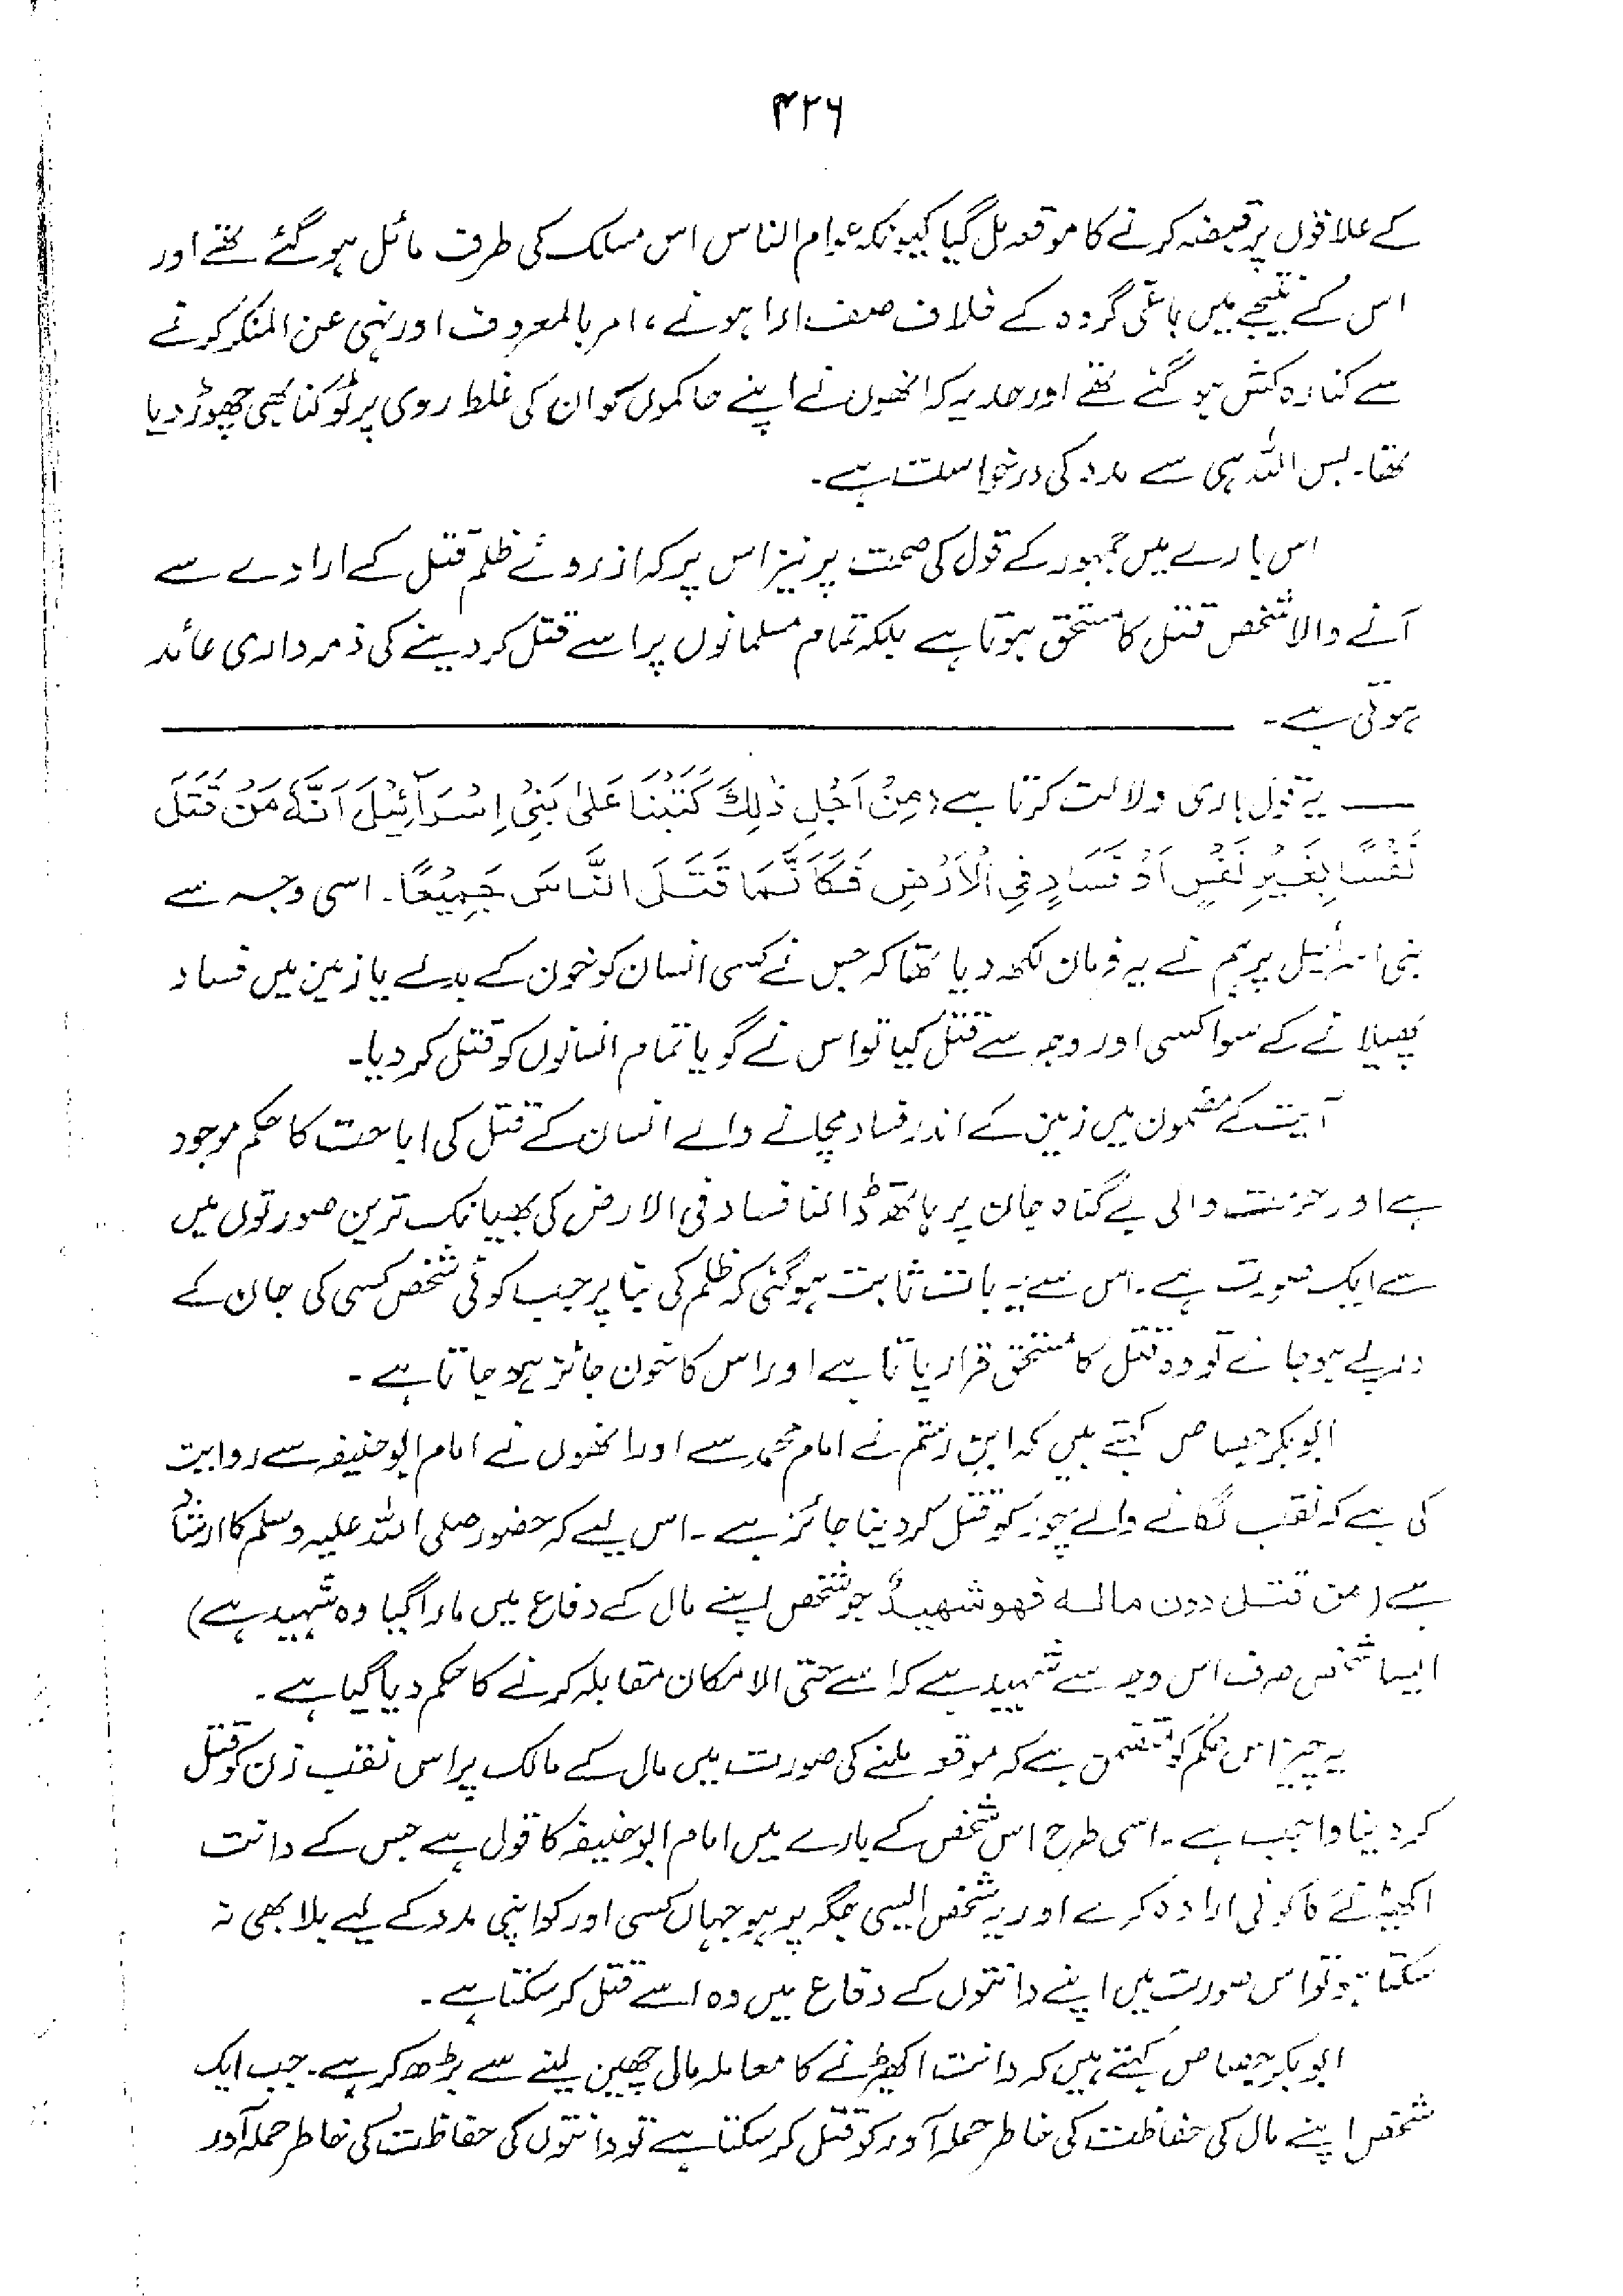 ۴۲۶
کے علاقوں پر قبضہ کرنے کا موقعہ مل گیا کیونکہ عوام الناس اس مسلک کی طرف مائل ہو گئے تھے اور
اس کے نتیجے میں باغی گروہ کے خلاف صف ارا ہونے، امر بالمعروف اور نہی عن المنکر کرنے
سے کنارہ کش ہو گئے تھے اور حد یہ کہ انھوں نے اپنے حاکموں کو ان کی غلط روی پر ٹوکنا بھی چھوڑ دیا
تھا۔ بس اللہ ہی سے مدد کی درخواست ہے۔
اس بارے میں جمہور کے قول کی صحت پر نیز اس پر کہ ازروئے ظلم قتل کے ارادے سے
آنے والا شخص قتل کا مستحق ہوتا ہے بلکہ تمام مسلمانوں پر اسے قتل کر دینے کی ذمہ داری عائد
ہوتی ہے۔
یہ قول باری دلالت کرتا ہے (مِنْ اَجْلِ ذٰلِكَ كَتَبْنَا عَلٰى بَنِيْ اِسْرَآئِيْلَ اَنَّهٗ مَنْ قَتَلَ
نَفْسًا بِغَيْرِ نَفْسٍ اَوْ فَسَادٍ فِي الْاَرْضِ فَكَاَنَّمَا قَتَلَ النَّاسَ جَمِيْعًا۔ اسی وجہ سے
بنی اسرائیل پر ہم نے یہ فرمان لکھ دیا تھا کہ جس نے کسی انسان کو خون کے بدلے یا زمین میں فساد
پھیلانے کے سوا کسی اور وجہ سے قتل کیا تو اس نے گویا تمام انسانوں کو قتل کر دیا۔
آیت کے مضمون میں زمین کے اندر فساد مچانے والے انسان کے قتل کی اباحت کا حکم موجود
ہے اور حرمت والی بے گناہ جان پر ہاتھ ڈالنا فساد فی الارض کی بھیانک ترین صورتوں میں
سے ایک صورت ہے۔ اس سے یہ بات ثابت ہو گئی کہ ظلم کی بنا پر جب کوئی شخص کسی کی جان کے
درپے ہو جائے تو وہ قتل کا مستحق قرار پاتا ہے اور اس کا خون جائز ہو جاتا ہے۔
ابو بکر جصاص کہتے ہیں کہ ابن رستم نے امام محمد سے اور انھوں نے امام ابو حنیفہ سے روایت
کی ہے کہ نقب لگانے والے چور کو قتل کر دینا جائز ہے۔ اس لیے کہ حضور صلی اللہ علیہ وسلم کا ارشاد
ہے (من قتل دون ماله فهو شهيدٌ جو شخص اپنے مال کے دفاع میں مارا گیا وہ شہید ہے)
ایسا شخص صرف اس وجہ سے شہید ہے کہ اسے حتی الامکان مقابلہ کرنے کا حکم دیا گیا ہے۔
یہ چیز اس حکم کو متضمن ہے کہ موقعہ ملنے کی صورت میں مال کے مالک پر اس نقب زن کو قتل
کر دینا واجب ہے۔ اسی طرح اس شخص کے بارے میں امام ابو حنیفہ کا قول ہے جس کے دانت
اکھیڑنے کا کوئی ارادہ کرے اور یہ شخص ایسی جگہ پر ہو جہاں کسی اور کو اپنی مدد کے لیے بلا بھی نہ
سکتا ہو تو اس صورت میں اپنے دانتوں کے دفاع میں وہ اسے قتل کر سکتا ہے۔
ابو بکر جصاص کہتے ہیں کہ دانت اکھیڑنے کا معاملہ مال چھین لینے سے بڑھ کر ہے۔ جب ایک
شخص اپنے مال کی حفاظت کی خاطر حملہ آور کو قتل کر سکتا ہے تو دانتوں کی حفاظت کی خاطر حملہ آور